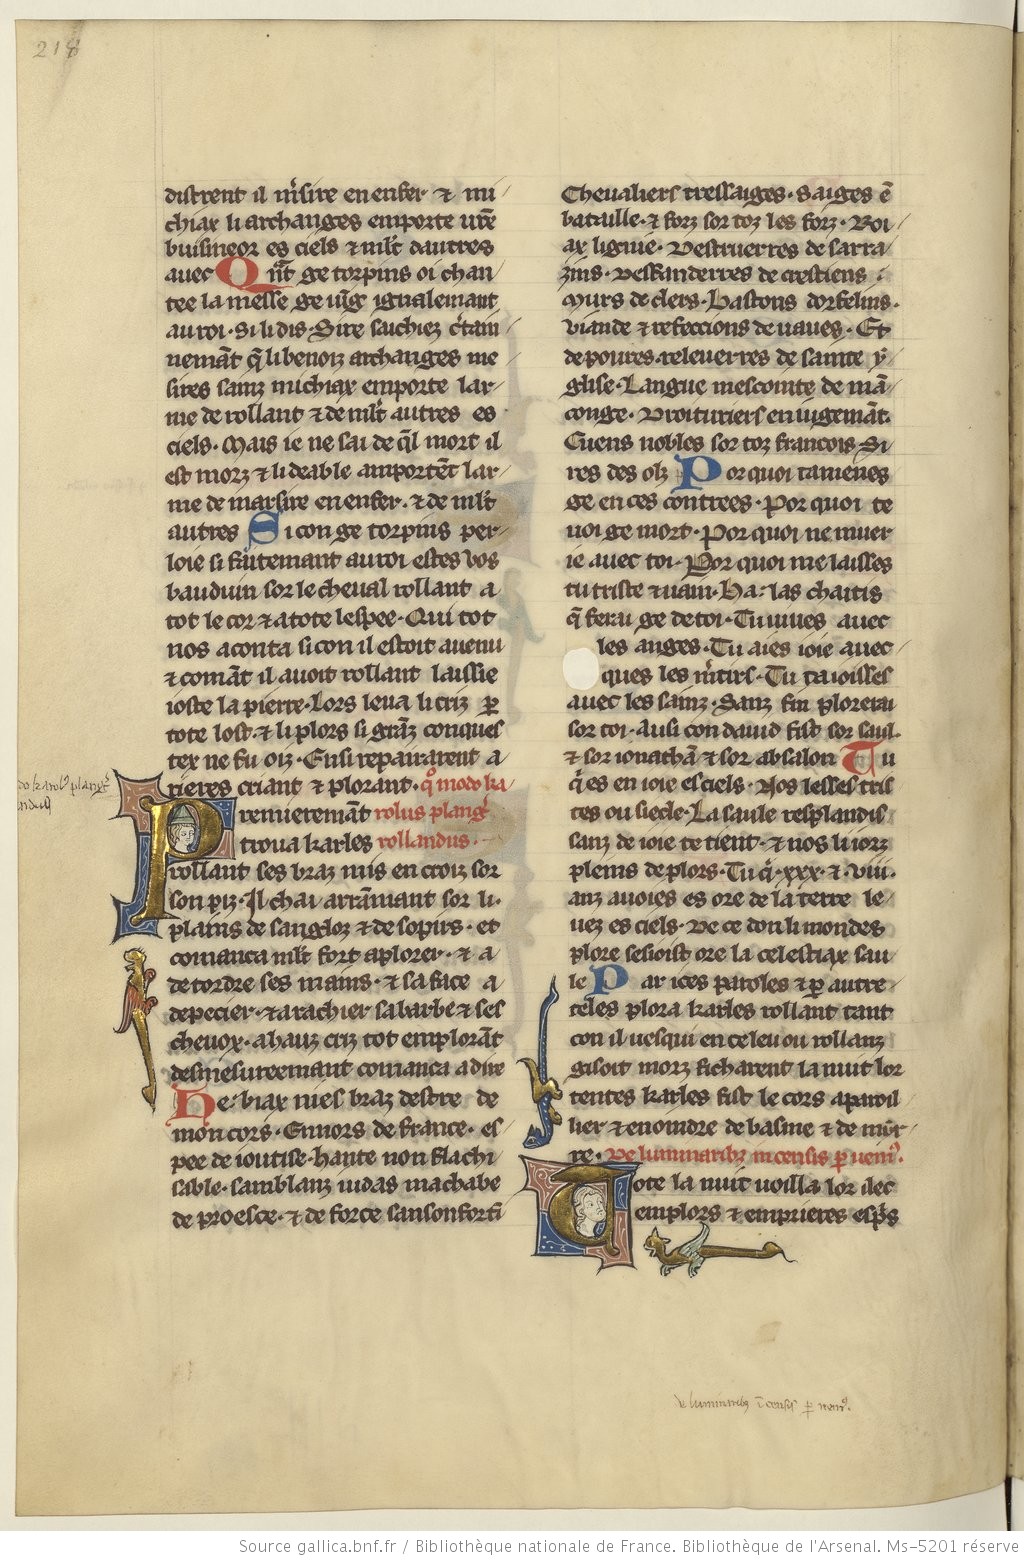 218
distrent il m̃sire en enfer ⁊ mi
chiax li archanges emporte ur̃e
buisineor es ciels ⁊ mlt̃ dautres
auec Qñt ge torpins oi chan
tee la messe ge uĩg igualemant
au roi · Si li dis · Sire sachiez c̃tain
nemãt q̃ li benoiz archanges me
sires sainz michiax emporte lar
me de rollant ⁊ de mlt̃ autres es
ciels · Mais ie ne sai de q̃l mort il
est morz ⁊ li deable amportẽt lar
me de marsire en enfer · ⁊ de mlt̃
autres Si con ge torpins per
loie si faitemant au roi estes vos
bauduin sor le cheual rollant a
tot le cor ⁊ a tote lespee · Qui tot
nos aconta si con il estoit auenu
⁊ comãt il auoit rollant laissie
ioste la pierre · Lors leua li criz ꝑ
tote lost · ⁊ li plors si grãz conques
tex ne fu oiz · Ensi repairarent a
rieres criant ⁊ plorant · q̃o modo ka
Premieremãt rolus plangit̃
troua karles rollandus ·
rollant ses braz mis en croiz sor
son piz · Il chai arrãmant sor li ·
plains de sangloz ⁊ de sopirs · et
comanca mlt̃ fort a plorer · ⁊ a
detordre ses mains · ⁊ sa face a
depecier · ⁊ arachier sa barbe ⁊ ses
cheuox · a hauz criz tot emplorãt
desmesureemant comanca a dire
He · biax nies braz destre de
mon cors · Ennors de france · es
pee de ioutise · hante non flachi
sable · samblanz iudas machabe
de proesce · ⁊ de force sanson forti
Cheualiers tressaiges · Saiges ẽ
bataille · ⁊ forz sor toz les forz · Roi
ax lignie · Destruerres de sarra
zins · Deffanderres de crestiens ·
Murs de clers · Bastons dorfelins ·
Viande ⁊ refeccions de uaues · Et
de poures · releuerres de sainte y
glise · Langue mesconte de mã
conge · Droituriers en iugemãt ·
Cuens nobles sor toz francois Si
res des olz Por quoi tamenes
ge en ces contrees · Por quoi te
uoi ge mort · Por quoi ne muer
ie auec toi · Por quoi me laisses
tu triste ⁊ uain · Ha · las chaitis
q̃ ferai ge de toi · Tu uiues auec
les anges · Tu aies ioie auec
ques les m̃tirs · Tu taioisses
auec les sainz · Sanz fin plorerai
sor toi · Ausi con dauid fist sor saul ·
⁊ sor ionathã ⁊ sor absalon Tu
q̃ es en ioie es ciels · Nos lesses tris
tes ou siecle · La saule resplandis
sanz de ioie te tient · ⁊ nos li iorz
pleins de plors · Tu q̃ · xxx · ⁊ · viii ·
anz auoies es ore de la terre le
uez es ciels · De ce don li mondes
plore sesioist ore la celestiax sau
le Par ices paroles ⁊ ꝑ autre
teles plora karles rollant tant
con il uesqui en ce leu ou rollanz
gisoit morz ficharent la nuit lor
tentes karles fist le cors aparoil
lier ⁊ enoindre de basme ⁊ de mir
re · De luminarib; incensis ꝑ nem⁹ ·
Tote la nuit uoilla lor ilec
emplors ⁊ emprieres espr̃s
de luminarib; ĩcensis ꝑ nem⁹ ·
Source gallica.bnf.fr / Bibliothèque nationale de France. Bibliothèque de l'Arsenal. Ms-5201 réserve